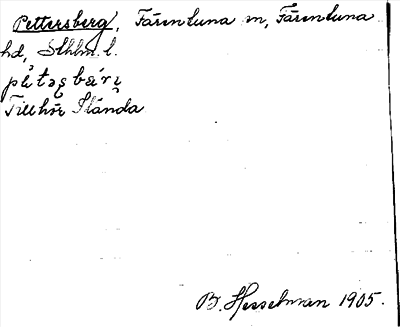 Pettersberg, Färentuna sn, Färentuna
hd, Sthlm l.
Tillhör Illånda
B. Hesselman 1905.